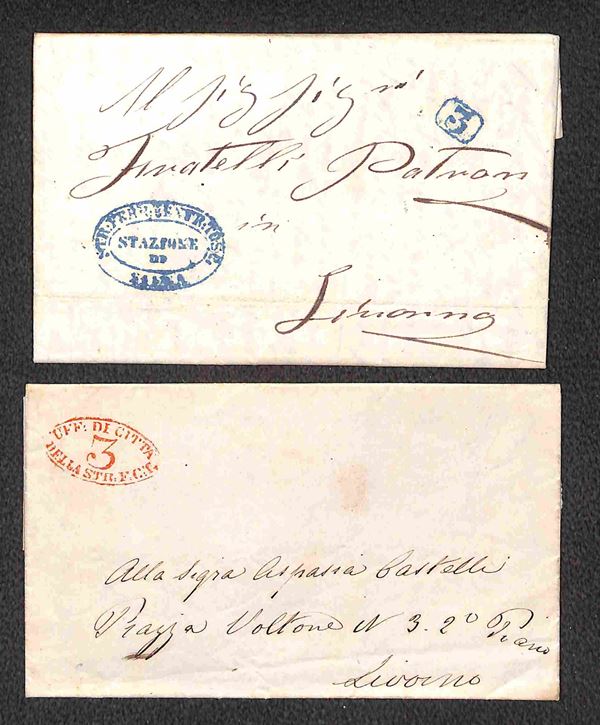 Al Sig Sig ri
3
Fratelli Patron
in
Livorno
STR: FERR: CENTR: TOSC:
STAZIONE
DI
SIENA
UFF: DI CITTÀ
3
DELLA STR. F.C.T.
Alla Sigra Aspasia Castelli
Piazza Voltone N 3. 2º Piano
Livorno